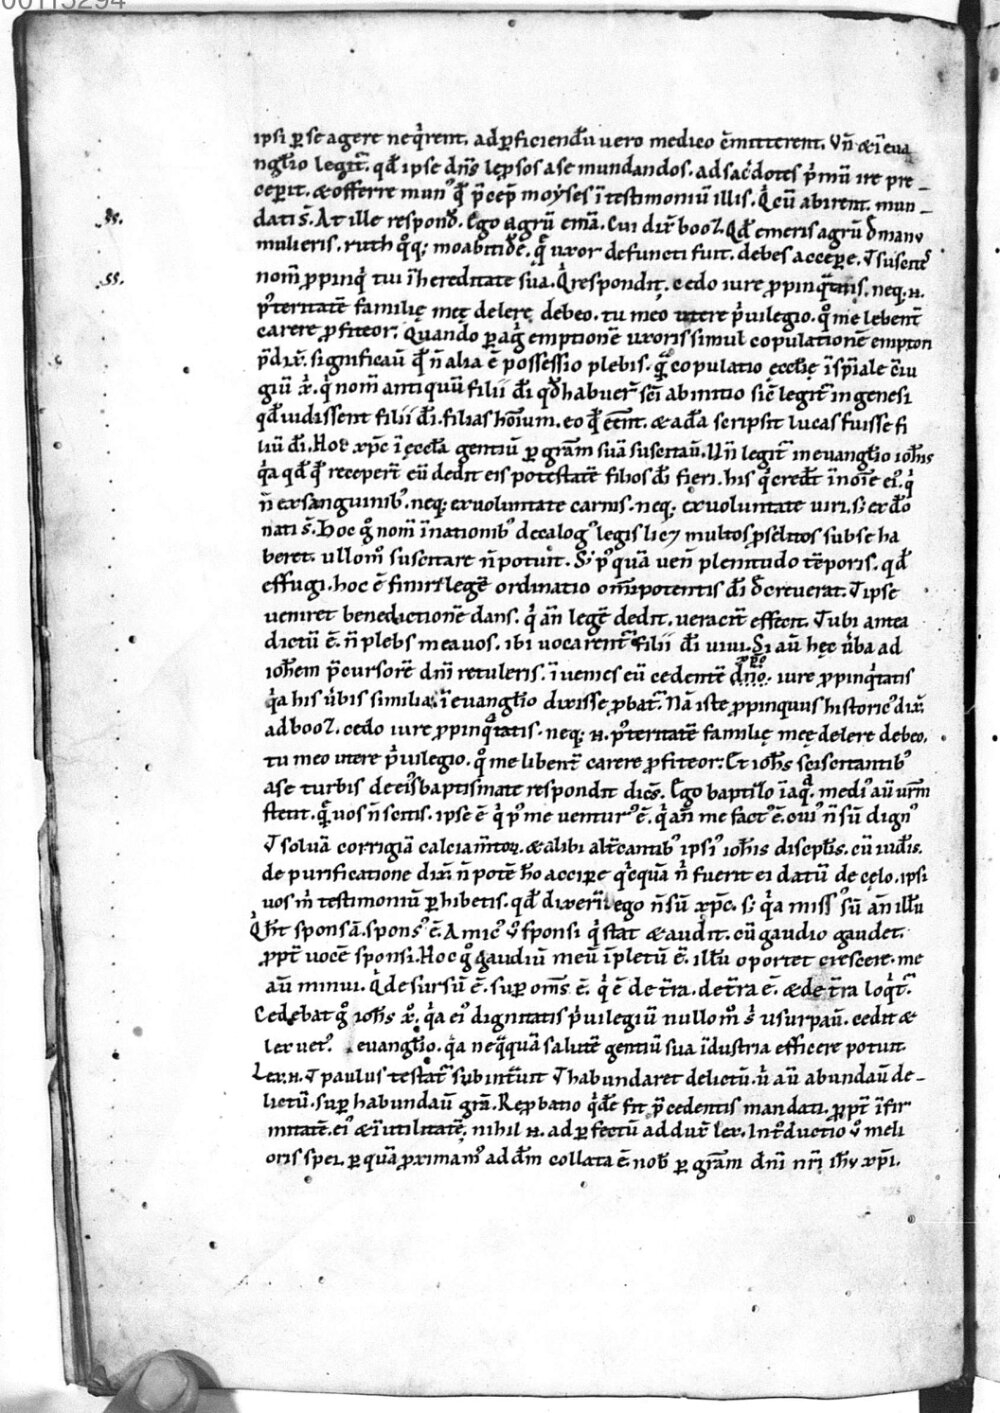 00115294
ipsi ꝑ se agere neq̇rent. adꝑficiendū vero medico cōmitterent. Vn̄ & ī eua
nglio legit᷑. qd̄ ipse dn̄s leprosos a se mundandos. ad sac̓dotes p̓mū ire pre
ceperit. & offerre mun᷒ qd̄ p̄cep̄ moyses ī testimoniū illis. Q̇ cū abirent. mun
dati s̄. At ille respond̄. Ego agrū emā. Cui dix̄ booz. Qd̄ emeris agrū d̄ manu
mulieris. ruth q̊q; moabitid̄e. q̄ uxor defuncti fuit. debes accipere. Vt suscites
nom̄ ꝓpinq̇ tui ī hereditate sua. Q̇ respondit. cedo iure ꝓpinq̇tatis. neq. n.
p᷒teritatē familię meę delere debeo. tu meo utere p̓uilegio. q̊ me lebent᷑
carere ꝓfiteor. Quando ꝑ agri emptionē uxoris simul copulationē emptori
p̄dix̄. significauit̄ qd̄ n̄ alia ē possessio plebis. q̄ copulatio ęcclię īsp̄iale c̄iu
giū x̄. q̇ nom̄ antiquū filii dī. qd̄ habuer̄ sc̄i ab initio sic̄ legit᷑ in genesi
qd̄ uidissent filii dī. filias hoīum. eo qd̄ eēnt. & adā scripsit lucas fuisse fi
liū dī. Hoc xp̄c ī ęccla gentiū ꝑ grām suā suscitau̅. Un̄ legit᷑ in euanglio ioħis
q̓a qd̄ qd̄ receper̄t eū dedit eis potestatē filios dī fieri. his q̇ credūt ī noīe ei᷒. q̇
n̄ ex sanguinib᷒. neq; ex uoluntate carnis. neq; ex uoluntate uiri. s; ex dō
nati s̄. Hoc g̊ nom̄ ī nationib᷒ decalog᷒ legis licꝫ multos ꝓselitos sub se ha
beret. ullom̊ suscitare n̄ potuit. S; p᷒ quā uen̄ plenitudo tēporis. qd̄
effugi. hoc ē finiri legē ordinatio omīpotentis dī decreuerat. Vt ipse
ueniret benedictionē dans. q̇ an̄ legē dedit. ueracit̄ effecit. Vt ubi antea
dictū ē. n̄ plebs mea uos. ibi uocarent᷑ filii dī uiui. Si au̅ hęc ūba ad
ioħem p̄cursorē dn̄i retuleris. īuenies eū cedentē dn̄o. iure ꝓpinq̇tatis
q̓a his ūbis similia ī euanglio dixisse ꝓbat᷑. Nā iste ꝓpinquus historic᷒ dix̄
ad booz. cedo iure ꝓpinq̇tatis. neq; n. p᷒teritatē familię meę delere debeo.
tu meo utere p̓uilegio. q̊ me libent᷑ carere ꝓfiteor. Et ioħs sciscitantib᷒
a se turbis de ei᷒ baptismate respondit dicēs. Ego baptizo ī aq̄. medi᷒ au̅ urm̄
stetit. q̄ uos n̄ scitis. ipse ē q̇ p᷒ me uentur᷒ ē. q̇ an̄ me fact᷒ ē. cui᷒ n̄ sū dign᷒
Vt soluā corrigiā calciam̄toꝝ. & alibi alt̄cantib᷒ ipsi᷒ ioħis discipłis. cū iudis.
de purificatione dix̄. n̄ potē hō accipere q̇cquā n̄ fuerit ei datū de cęlo. ipsi
uos m̓ testimoniū ꝑhibetis. qd̄ dixerī ego n̄ sū xp̄c. s; q̓a miss᷒ sū an̄ illū
Q̇ h̄t sponsā. spons᷒ ē. Amic᷒ ů sponsi q̇ stat & audit. cū gaudio gaudet.
ꝓpt᷑ uocē sponsi. Hoc g̊ gaudiū meū īpletū ē. illū oportet crescere. me
au̅ minui. Q̇ de sursū ē. suꝑ om̄s ē. q̇ ē de t̄ra. de t̄ra ē. & de t̄ra loq̇t᷑.
Cedebat g̊ ioħs x̄. q̓a ei᷒ dignitatis p̓uilegiū nullom̊ s̓ usurpau̅. cedit &
lex uet᷒. euanglio. q̓a neq̄quā salutē gentiū sua īdustria efficere potuit.
Lex. n. Vt paulus testat᷑ subint̄uit Vt habundaret delictū. ū̓ au̅ abundau̅ de
lictū. suꝑhabundau̅ grā. Reꝓbatio q̇de fit p̄cedentis mandati. ꝓpt᷑ īfir
mitatē. ei᷒ & īutilitatē. nihil n. ad ꝑfectū addux̄ lex. Int̊ductio ů meli
oris spei. ꝑ quā ꝓximam᷒ ad dm̄. collata ē nob̄ ꝑ grām dn̄i nr̄i iħu xp̄i.